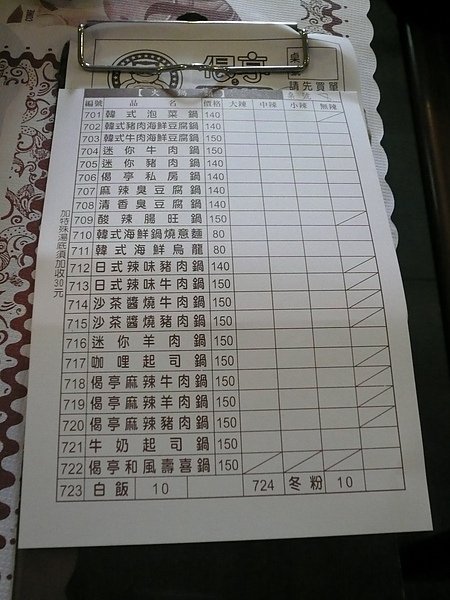 偈亭
請先買單
編號 品名 價格 大辣 中辣 小辣 無辣
701 韓式泡菜鍋 140
702 韓式豬肉海鮮豆腐鍋 140
703 韓式牛肉海鮮豆腐鍋 150
704 迷你牛肉鍋 150
705 迷你豬肉鍋 140
706 偈亭私房鍋 140
707 麻辣臭豆腐鍋 140
708 清香臭豆腐鍋 140
709 酸辣腸旺鍋 150
710 韓式海鮮鍋燒意麵 80
711 韓式海鮮烏龍 80
712 日式辣味豬肉鍋 140
713 日式辣味牛肉鍋 150
714 沙茶醬燒牛肉鍋 150
715 沙茶醬燒豬肉鍋 150
716 迷你羊肉鍋 150
717 咖哩起司鍋 150
718 偈亭麻辣牛肉鍋 150
719 偈亭麻辣羊肉鍋 150
720 偈亭麻辣豬肉鍋 150
721 牛奶起司鍋 150
722 偈亭和風壽喜鍋 150
723 白飯 10 724 冬粉 10
加特殊湯底須加收30元